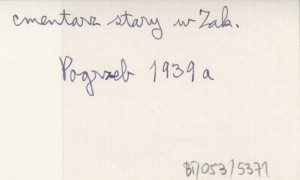 cmentarz stary w Zak.
Pogrzeb 1939 a
BT/053/5371